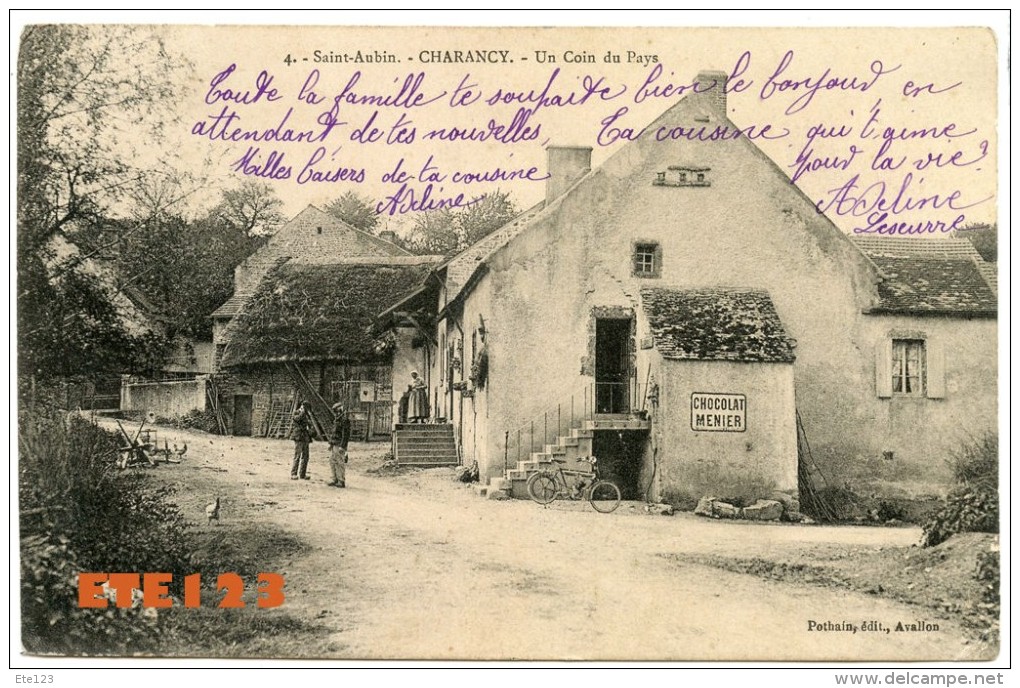 4. - Saint-Aubin. - CHARANCY. - Un Coin du Pays
Toute la famille te souhaite bien le bonjoud en
attendant de tes nouvelles,
Milles baisers de ta cousine
Adeline
Ta cousine qui t'aime
poud la vie
Adeline
Leseurre
CHOCOLAT
MENIER
ETE123
Pothain, édit., Avallon
Ete123
www.delcampe.net